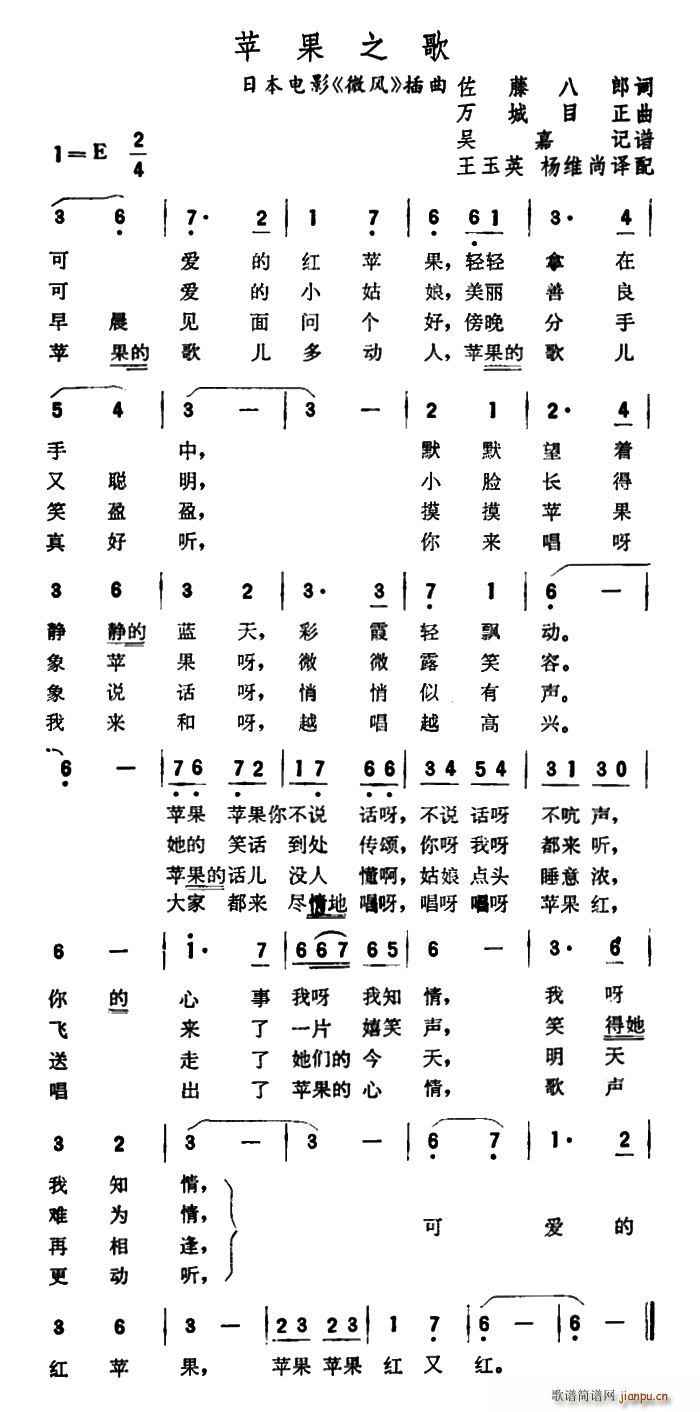 苹果之歌
日本电影《微风》插曲 佐藤八郎词
万城目正曲
1=E 2/4
吴嘉记谱
王玉英 杨维尚译配
3 6 | 7· 2 | 1 7 | 6 61 | 3· 4 |
可爱的红苹果，轻轻拿在
可爱的小姑娘，美丽善良
早晨见面问个好，傍晚分手
苹果的歌儿多动人，苹果的歌儿
5 4 | 3 — | 3 — | 2 1 | 2· 4 |
手中，默默望着
又聪明，小脸长得
笑盈盈，摸摸苹果
真好听，你来唱呀
3 6 | 3 2 | 3· 3 | 7 1 | 6 — |
静静的蓝天，彩霞轻飘动。
象苹果呀，微微露笑容。
象说话呀，悄悄似有声。
我来和呀，越唱越高兴。
6 — | 76 72 | 17 66 | 34 54 | 31 30 |
苹果 苹果你不说话呀，不说话呀 不吭声，
她的 笑话 到处 传颂，你呀我呀 都来听，
苹果的话儿 没人 懂啊，姑娘点头 睡意浓，
大家 都来 尽情地 唱呀，唱呀唱呀 苹果红，
6 — | 1· 7 | 667 65 | 6 — | 3· 6 |
你的心事我呀 我知情，我呀
飞来了一片 嬉笑声，笑得她
送走了她们的今天，明天
唱出了苹果的心情，歌声
3 2 | 3 — | 3 — | 6 7 | 1· 2 |
我知情，
难为情，
可爱的
再相逢，
更动听，
3 6 | 3 — | 23 23 | 1 7 | 6 — | 6 — ‖
红苹果，苹果 苹果 红又红。
歌谱简谱网
jianpu.cn